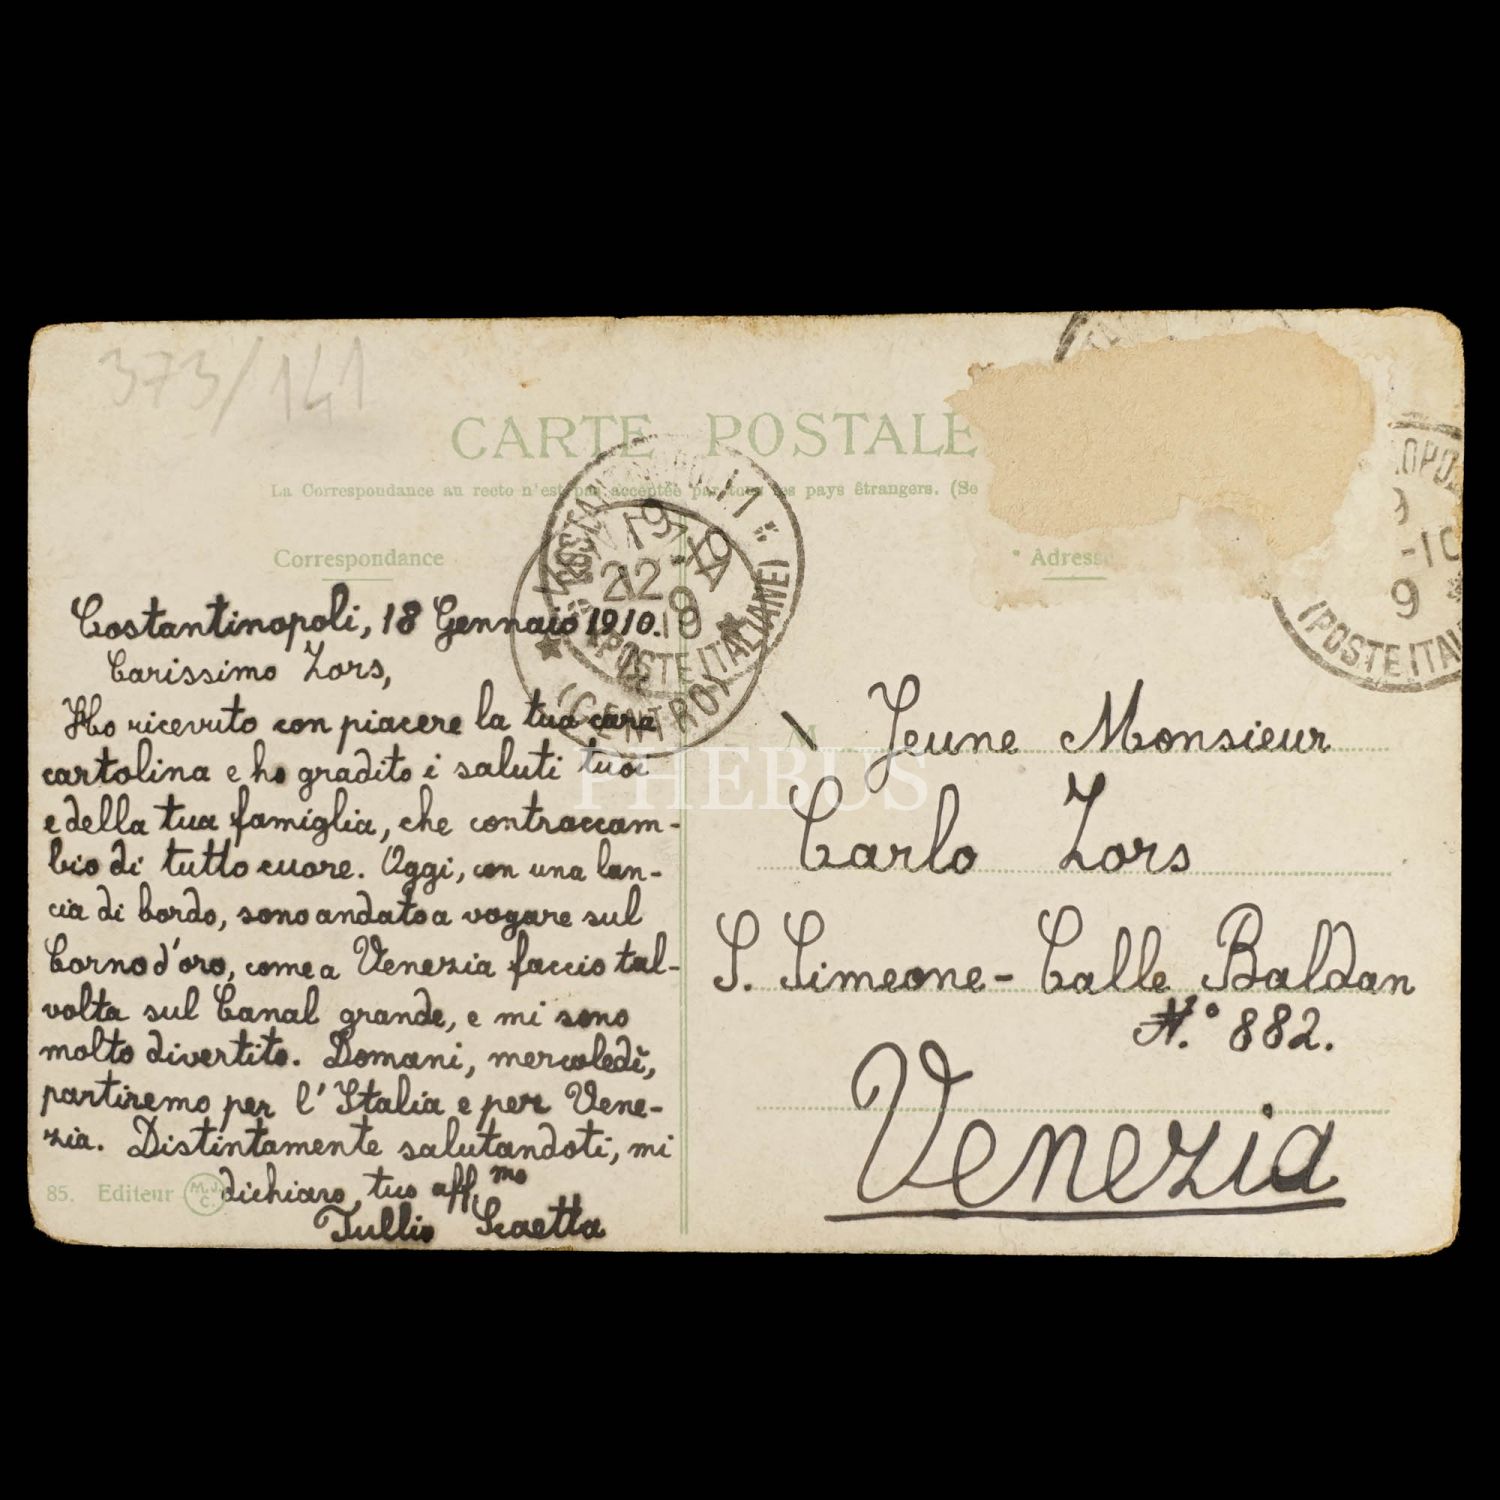 373/141
CARTE POSTALE
La Correspondance au recto n'est pas acceptée par tous les pays étrangers. (Se
Correspondance
Adresse
Costantinopoli, 18 Gennaio 1910.
Carissimo Zors,
Ho ricevuto con piacere la tua cara
cartolina e ho gradito i saluti tuoi
e della tua famiglia, che contraccam-
bio di tutto cuore. Oggi, con una lan-
cia di bordo, sono andato a vogare sul
Corno d'oro, come a Venezia faccio tal-
volta sul Canal grande, e mi sono
molto divertito. Domani, mercoledì,
partiremo per l'Italia e per Vene-
zia. Distintamente salutandoti, mi
dichiaro, tuo aff.mo
Tullio Scaetta
85. Editeur M.J.C.
M
Jeune Monsieur
Carlo Zors
S. Simeone - Calle Baldan
N.° 882.
Venezia
(POSTE ITALIANE)
(CENTRO)
OPO
-10
9
(POSTE ITAL
PHEBUS